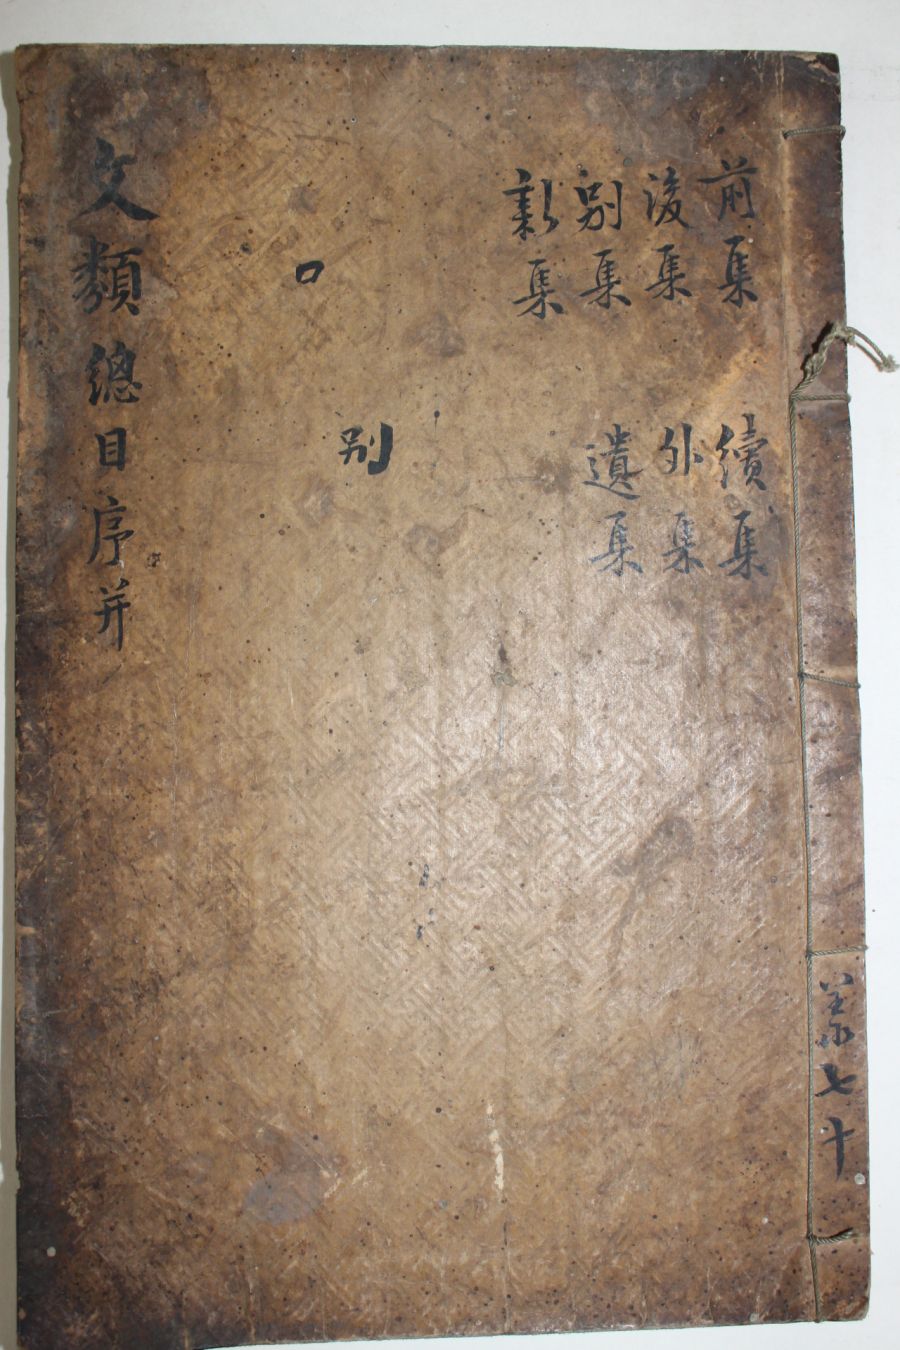 七十
前集 續集
後集 外集
別集 遺集
新集
別
口
文類總目序并